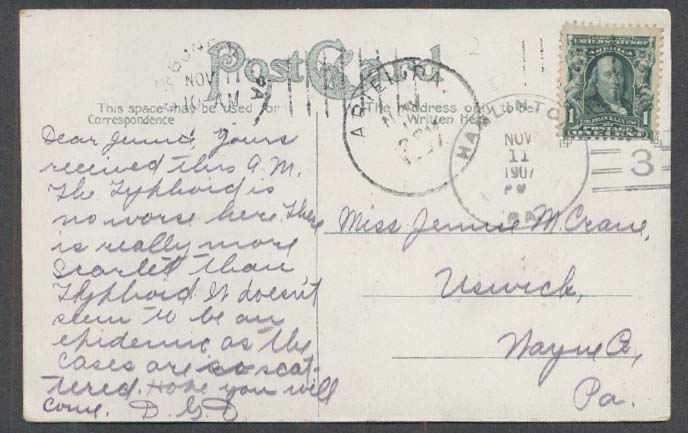 Post Card
This space may be used for
Correspondence
The Address only to be
Written Here
NOV 11
10-AM
PA
ARIEL, PA.
HAMLINTON
NOV
11
1907
PM
PA
3
UNITED STATES OF
AMERICA
1 1
Dear Jennie, Yours
received this A.M.
The Typhoid is
no worse here. There
is really more
Scarlet than
Typhoid It doesn't
seem to be an
epidemic as the
cases are so scat-
tered. Hope you will
come. D.G.D.
Miss Jennie M. Crane,
Uswick,
Wayne Co,
Pa.